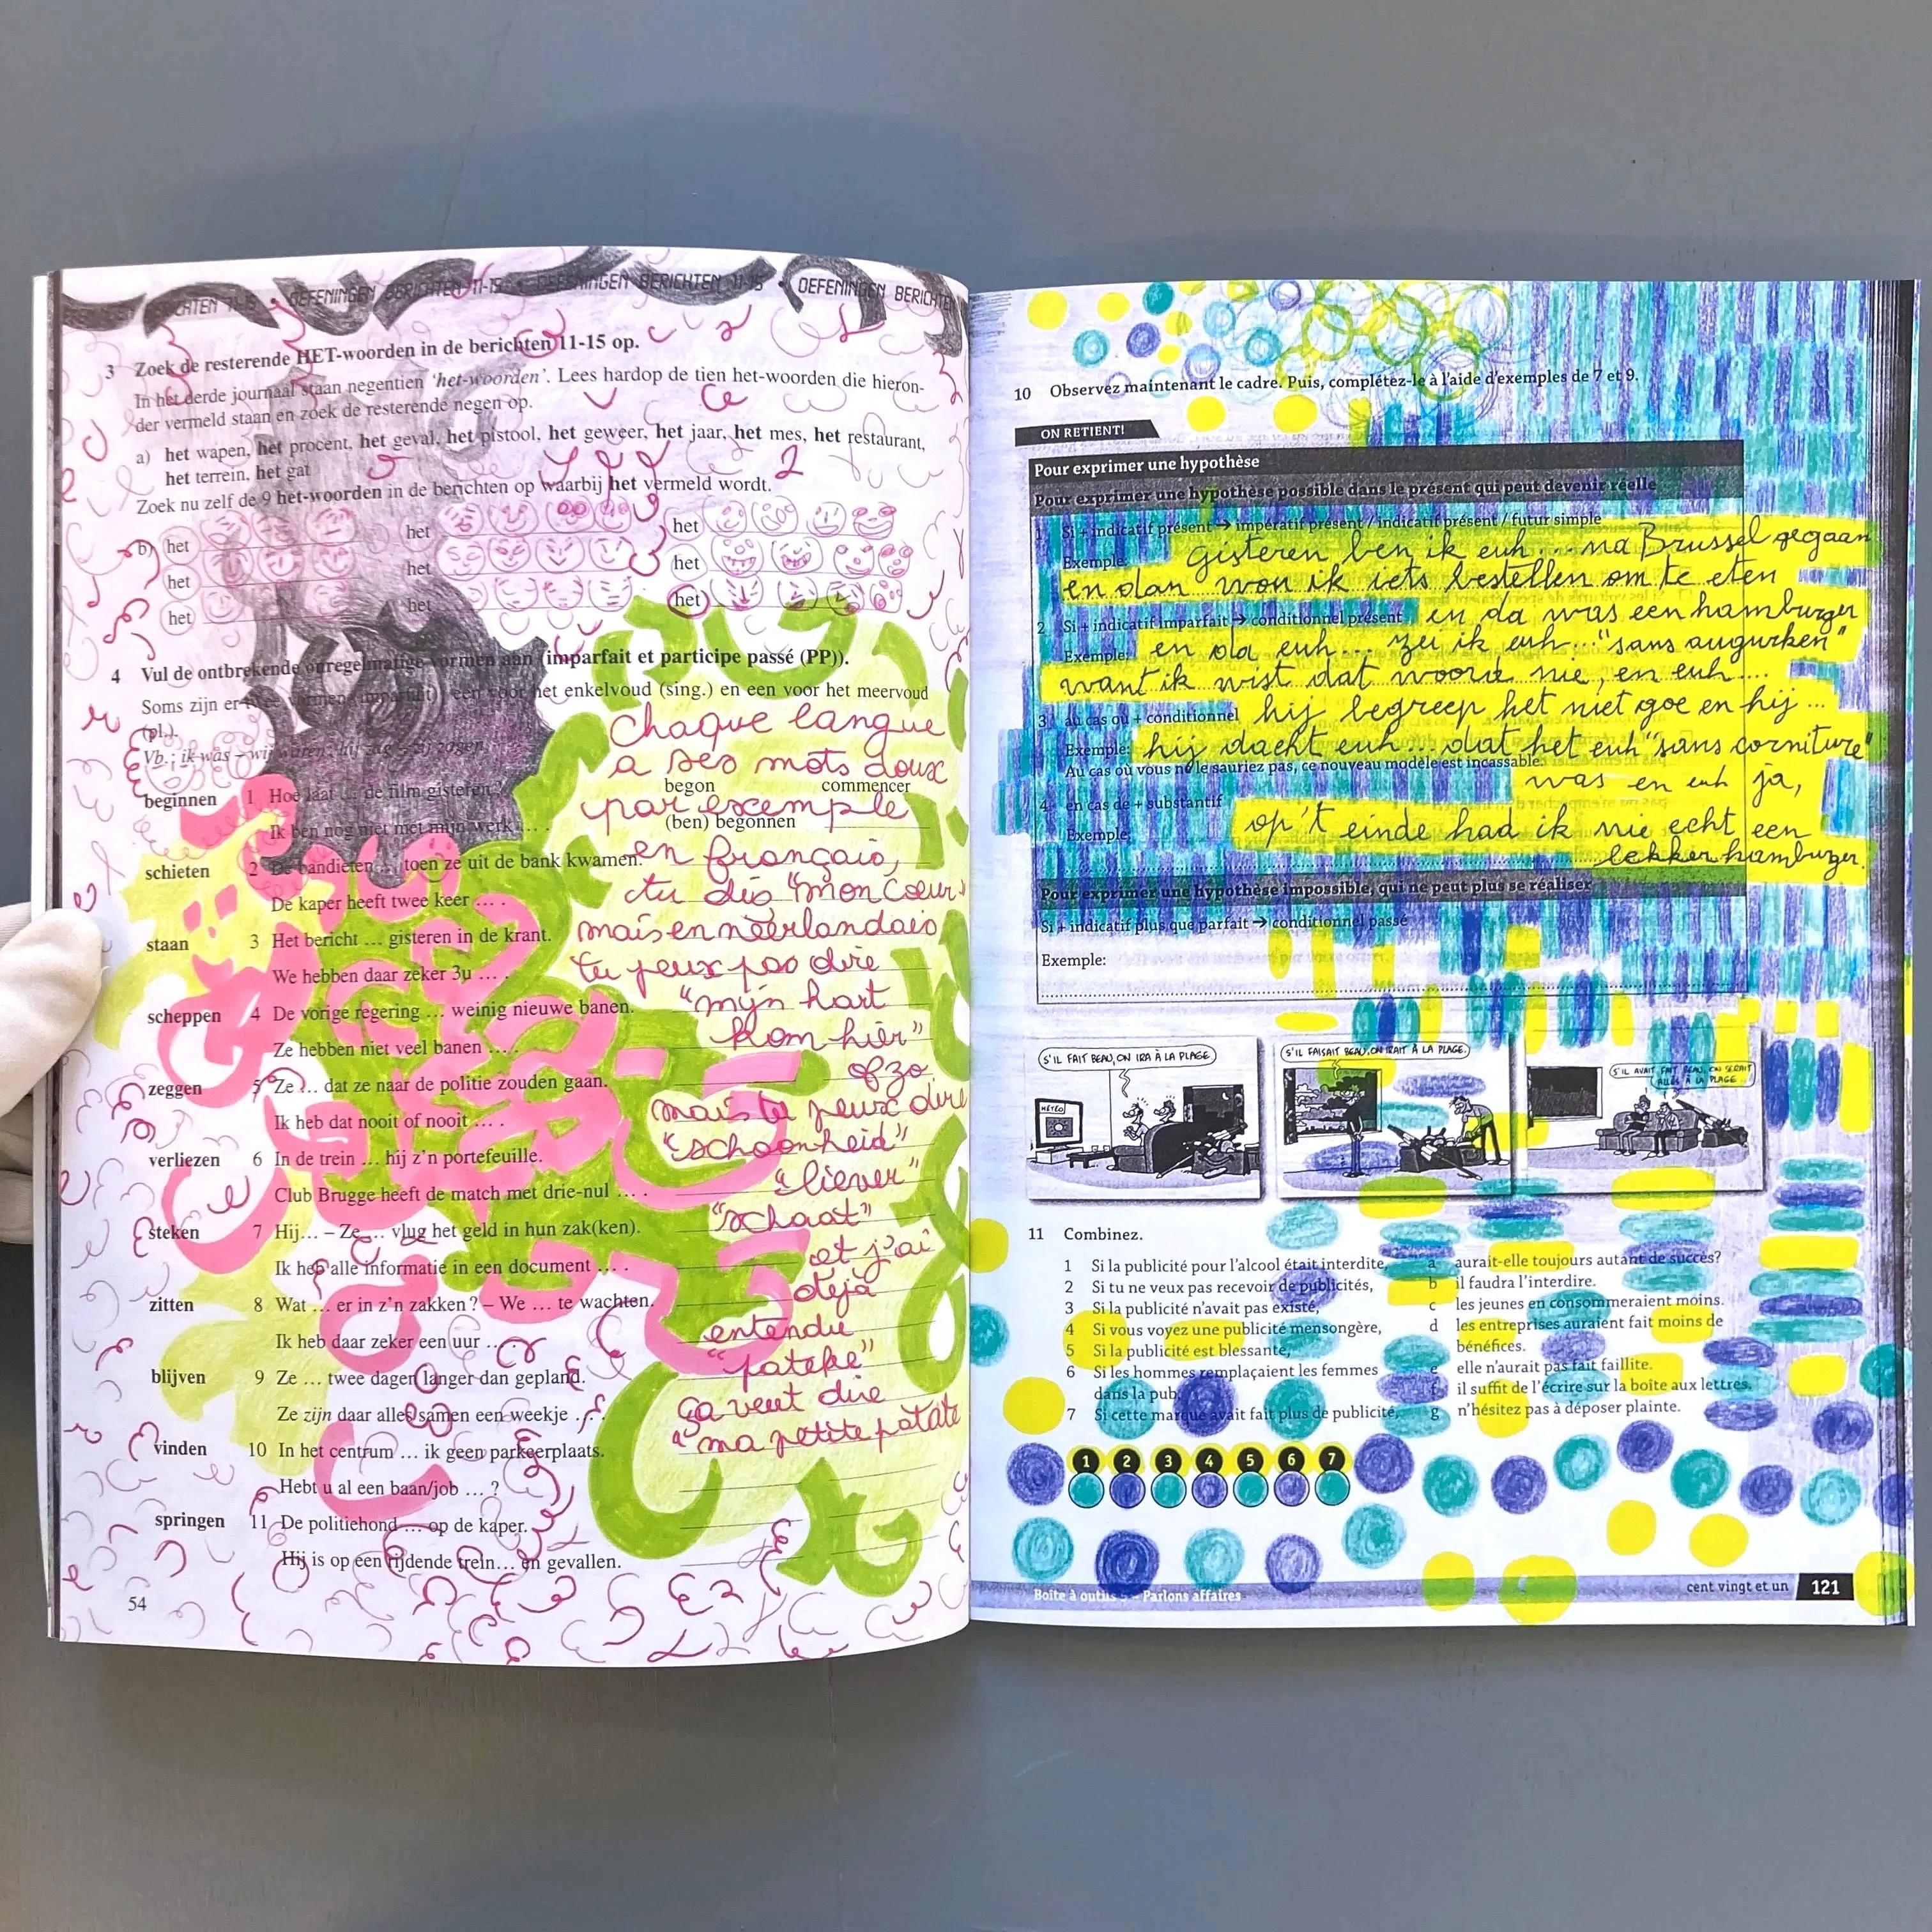 OEFENINGEN BERICHTEN 11-15 OEFENINGEN BERICHTEN 11-15 • OEFENINGEN BERICHTEN
3 Zoek de resterende HET-woorden in de berichten 11-15 op.
In het derde journaal staan negentien 'het-woorden'. Lees hardop de tien het-woorden die hieron-
der vermeld staan en zoek de resterende negen op.
a) het wapen, het procent, het geval, het pistool, het geweer, het jaar, het mes, het restaurant,
het terrein, het gat
Zoek nu zelf de 9 het-woorden in de berichten op waarbij het vermeld wordt.
b) het het het
het het het
het het het
4 Vul de ontbrekende onregelmatige vormen aan (imparfait et participe passé (PP)).
Soms zijn er twee vormen (imparfait): een voor het enkelvoud (sing.) en een voor het meervoud
(pl.).
Vb.: ik was – wij waren; hij zag – zij zagen
beginnen 1 Hoe laat … de film gisteren? begon commencer
Ik ben nog niet met mijn werk … . (ben) begonnen
schieten 2 De bandieten … toen ze uit de bank kwamen.
De kaper heeft twee keer … .
staan 3 Het bericht … gisteren in de krant.
We hebben daar zeker 3u … .
scheppen 4 De vorige regering … weinig nieuwe banen.
Ze hebben niet veel banen … .
zeggen 5 Ze … dat ze naar de politie zouden gaan.
Ik heb dat nooit of nooit … .
verliezen 6 In de trein … hij z'n portefeuille.
Club Brugge heeft de match met drie-nul … .
steken 7 Hij… – Ze … vlug het geld in hun zak(ken).
Ik heb alle informatie in een document … .
zitten 8 Wat … er in z'n zakken? – We … te wachten.
Ik heb daar zeker een uur … .
blijven 9 Ze … twee dagen langer dan gepland.
Ze zijn daar alles samen een weekje … .
vinden 10 In het centrum … ik geen parkeerplaats.
Hebt u al een baan/job … ?
springen 11 De politiehond … op de kaper.
Hij is op een rijdende trein… en gevallen.
54
chaque langue
a ses mots doux
par exemple
en français,
tu dis "mon cœur"
mais en néerlandais
tu peux pas dire
"mijn hart
kom hier"
ofzo
mais tu peux dire
"schoonheid"
"liever"
"schaat"
et j'ai
déjà
entendu
"pateke"
ça veut dire
"ma petite patate
10 Observez maintenant le cadre. Puis, complétez-le à l'aide d'exemples de 7 et 9.
ON RETIENT!
Pour exprimer une hypothèse
Pour exprimer une hypothèse possible dans le présent qui peut devenir réelle
1 Si + indicatif présent → impératif présent / indicatif présent / futur simple
Exemple: gisteren ben ik euh... na Brussel gegaan
en dan won ik iets bestellen om te eten
2 Si + indicatif imparfait → conditionnel présent en da was een hamburger
Exemple: en da euh... zei ik euh... "sans augurken"
want ik wist dat woord nie, en euh...
3 au cas où + conditionnel hij begreep het niet goe en hij ...
Exemple: hij dacht euh... dat het euh "sans corniture"
Au cas où vous ne le sauriez pas, ce nouveau modèle est incassable.
was en euh ja,
4 en cas de + substantif
Exemple: op't einde had ik nie echt een
lekker hamburger.
Pour exprimer une hypothèse impossible, qui ne peut plus se réaliser
Si + indicatif plus que parfait → conditionnel passé
Exemple:
S'IL FAIT BEAU, ON IRA À LA PLAGE
MÉTÉO
S'IL FAISAIT BEAU, ON IRAIT À LA PLAGE.
S'IL AVAIT FAIT BEAU, ON SERAIT
ALLÉS À LA PLAGE...
11 Combinez.
1 Si la publicité pour l'alcool était interdite,
2 Si tu ne veux pas recevoir de publicités,
3 Si la publicité n'avait pas existé,
4 Si vous voyez une publicité mensongère,
5 Si la publicité est blessante,
6 Si les hommes remplaçaient les femmes
dans la pub,
7 Si cette marque avait fait plus de publicité,
a aurait-elle toujours autant de succès?
b il faudra l'interdire.
c les jeunes en consommeraient moins.
d les entreprises auraient fait moins de
bénéfices.
e elle n'aurait pas fait faillite.
f il suffit de l'écrire sur la boîte aux lettres.
g n'hésitez pas à déposer plainte.
1 2 3 4 5 6 7
Boîte à outils 5 – Parlons affaires
cent vingt et un 121